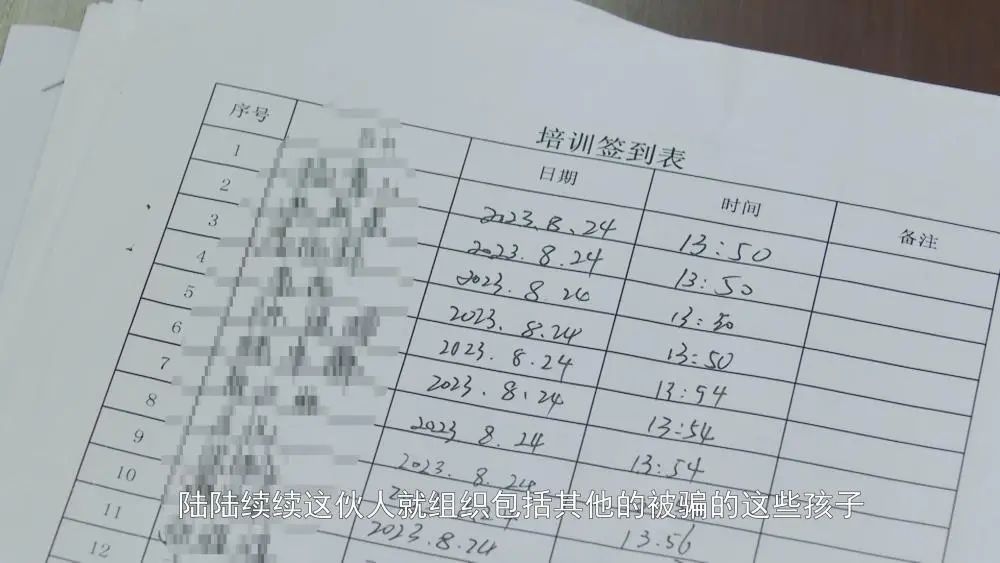 培训签到表
序号 日期 时间 备注
1 2023.8.24 13:50
2 2023.8.24 13:50
3 2023.8.24
4 2023.8.24 13:50
5 2023.8.24 13:54
6 2023.8.24 13:54
7 2023.8.24 13:54
8 2023.8.24
9 13.56
10 2023.8.24
11
12
陆陆续续这伙人就组织包括其他的被骗的这些孩子